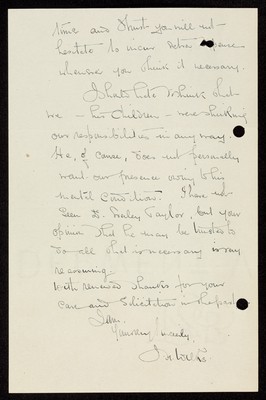 time and I trust you will not
hesitate to incur extra expense
whenever you think it necessary.
I should hate to think that
we — his children — were shirking
our responsibilities in any way.
He, of course, does not personally
want our presence owing to his
mental condition. I have not
seen D. Taylor, but your
opinion that he may be trusted to
do all that is necessary is very
reassuring.
With renewed thanks for your
care and solicitation in the past
I am.
Yours sincerely,